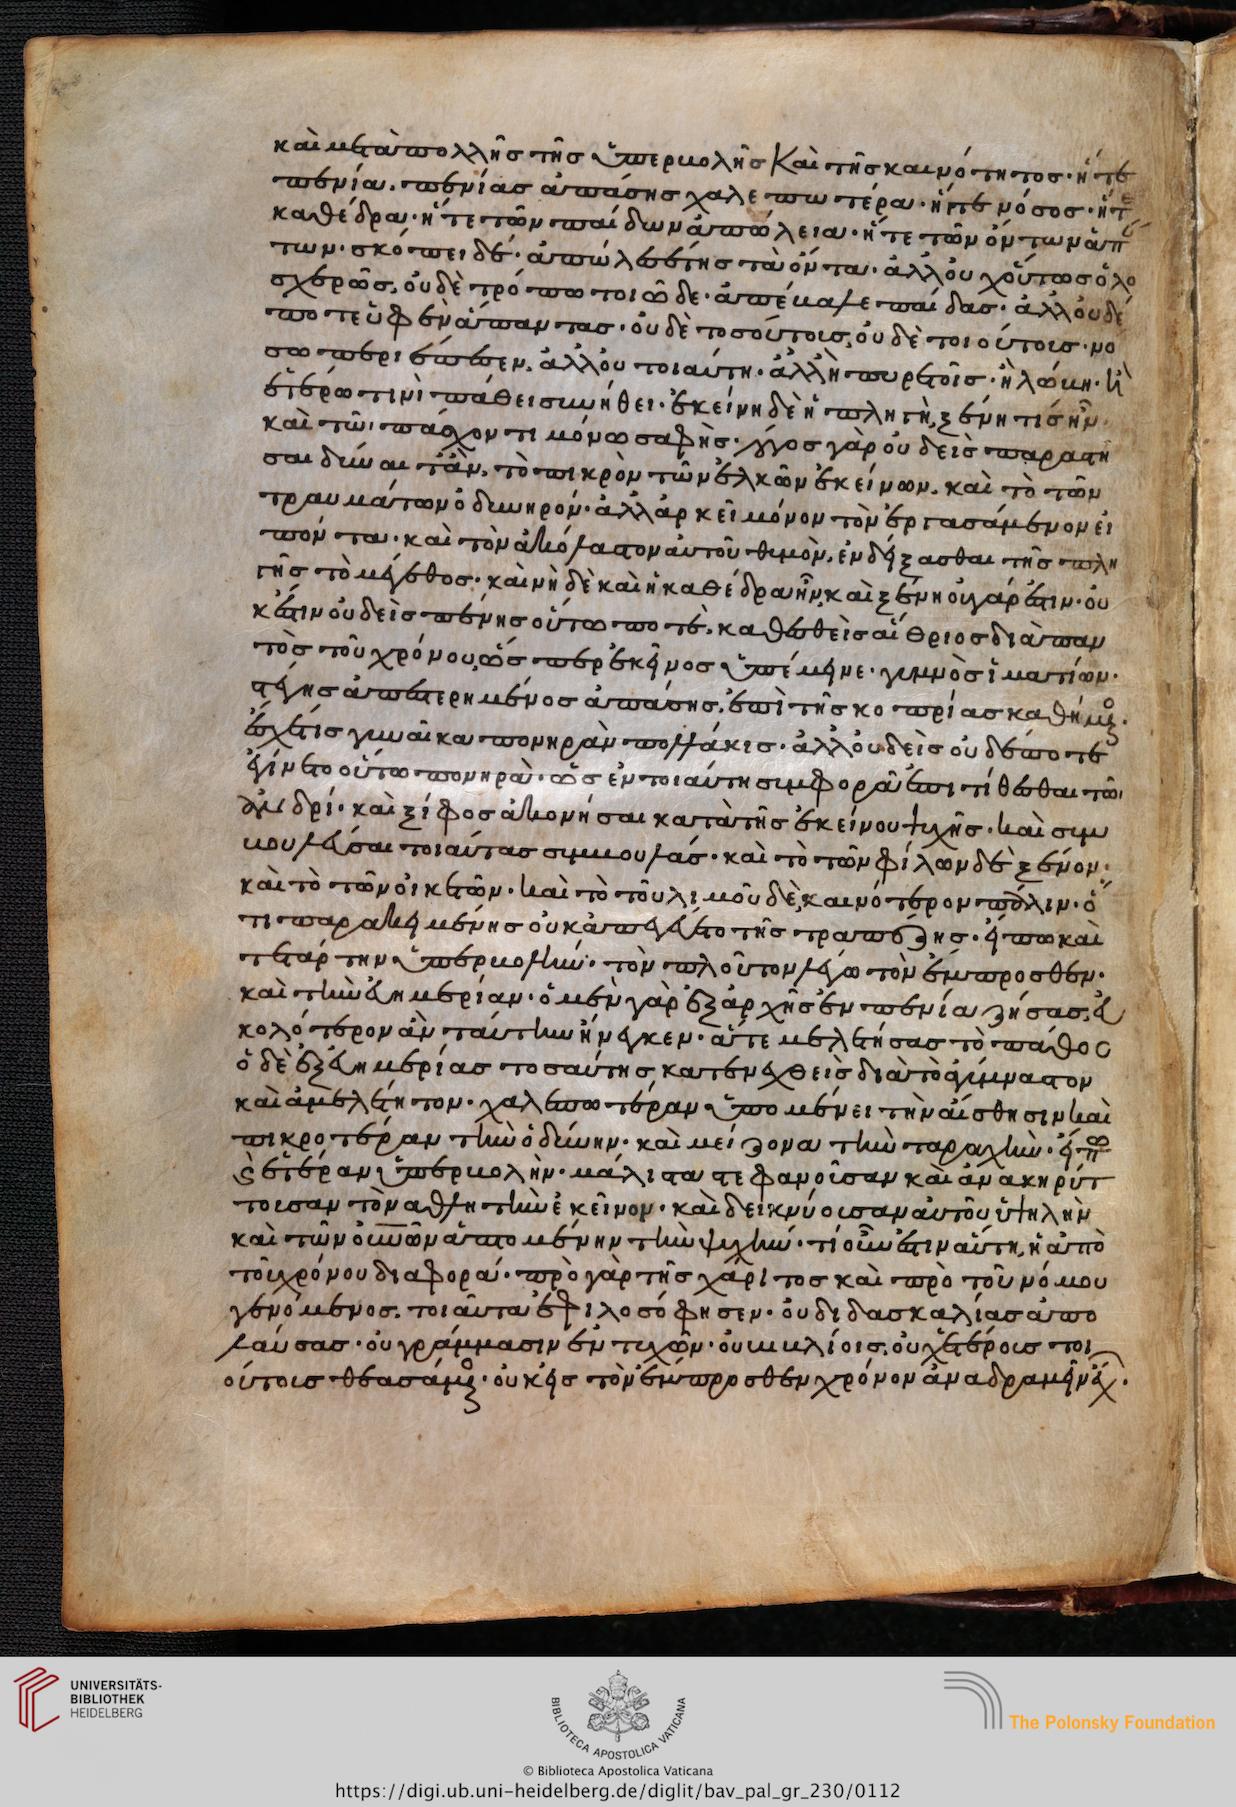 καὶ μετὰ πολλῆς τῆς ὑπερβολῆς καὶ τῆς καινότητος· ἥ τε
πενία. πενίας ἁπάσης χαλεπωτέρα· ἥ τε νόσος· ἥ τε
καθέδρα· ἥ τε τῶν παίδων ἀπώλεια· ἥ τε τῶν ὄντων ἁπάν
των· σκόπει δέ· ἀπώλεσέ τις τὰ ὄντα· ἀλλ' οὐχ οὕτως ὁλο
σχερῶς, οὐδὲ τρόπω τοιῶδε· ἀπέβαλε παίδας· ἀλλ' οὐδέ
ποτε ὑφ' ἓν ἅπαντας· οὐδὲ τοσούτοις, οὐδὲ τοιούτοις· νό
σω περιέπεσεν. ἀλλ' οὐ τοιαύτη· ἀλλ' ἢ πυρετοῖς· ἢ λώβη· ἢ
ἑτέρω τινὶ πάθει συνήθει· ἐκείνη δὲ ἡ πληγὴ, ξένη τίς ἦν·
καὶ τῶ πάσχοντι μόνω σαφής· λόγος γὰρ οὐδεὶς παραστῆ
σαι δύναιτ' ἂν, τὸ πικρὸν τῶν ἑλκῶν ἐκείνων. καὶ τὸ τῶν
τραυμάτων ὀδυνηρόν· ἀλλ' ἀρκεῖ μόνον τὸν ἐργασάμενον εἰ
πόντα· καὶ τὸν ἀκόρεστον αὐτοῦ θυμὸν, ἐνδείξασθαι τῆς πλη
γῆς τὸ μέγεθος· καὶ μὴ δὲ καὶ ἡ καθέδρα ἦν, καὶ ξένη· οὐ γάρ ἐστιν· οὐ
κ ἔστιν οὐδεὶς πένης οὕτω ποτὲ, καθεσθεὶς αἴθριος διὰ παν
τὸς τοῦ χρόνου, ὥσπερ ἐκεῖνος ὑπέμεινε· γυμνὸς ἱματίων·
στέγης ἀπεστερημένος ἁπάσης, ἐπὶ τῆς κοπρίας καθήμενος.
ἔσχε τίς γυναῖκα πονηρὰν πολλάκις· ἀλλ' οὐδεὶς οὐδέποτε
ἐγένετο οὕτω πονηρὰ· ὡς ἐν τοιαύτη συμφορᾶ ἐπιτίθεσθαι τῶ
ἀνδρί· καὶ ξίφος ἀκονῆσαι κατὰ τῆς ἐκείνου ψυχῆς· καὶ συμ
βουλεῦσαι τοιαύτας συμβουλάς· καὶ τὸ τῶν φίλων δὲ ξένον·
καὶ τὸ τῶν οἰκετῶν· καὶ τὸ τοῦ λιμοῦ δὲ, καινότερον πάλιν· ὅ
τι παρακειμένης οὐκ ἀπέλαυε τῆς τραπέζης· εἴπω καὶ
τετάρτην ὑπερβολήν· τὸν πλοῦτον λέγω τὸν ἔμπροσθεν·
καὶ τὴν εὐημερίαν· ὁ μὲν γὰρ ἐξ ἀρχῆς ἐν πενία ζήσας, εὐ
κολώτερον ἂν ταύτην ἤνεγκεν· ἅτε μελετήσας τὸ πάθος
ὁ δὲ ἐξ εὐημερίας τοσαύτης κατενεχθεὶς διὰ τὸ ἀγύμναστον
καὶ ἀμελέτητον· χαλεπωτέραν ὑπομένει τὴν αἴσθησιν καὶ
πικροτέραν τὴν ὀδύνην· καὶ μείζονα τὴν ταραχήν· εἴπω
καὶ ἑτέραν ὑπερβολὴν· μάλιστα στεφανοῖσαν καὶ ἀνακηρύτ
τουσαν τὸν ἀθλητὴν ἐκεῖνον· καὶ δεικνύουσαν αὐτοῦ ὑψηλὴν
καὶ τῶν οὐνῶν ἁπτομένην τὴν ψυχήν· τί οὖν ἐστιν αὕτη, ἡ ἀπὸ
τοῦ χρόνου διαφορά· πρὸ γὰρ τῆς χάριτος καὶ πρὸ τοῦ νόμου
γενόμενος. τοιαῦτα ἐφιλοσόφησεν· οὐ διδασκαλίας ἀπο
λαύσας· οὐ γράμμασιν ἐντυχῶν· οὐ βιβλίοις, οὐχ ἑτέροις τοι
ούτοις θεασάμενος· οὐκ εἰς τὸν ἔμπροσθεν χρόνον ἀναδραμεῖν ἔχ.
UNIVERSITÄTS-
BIBLIOTHEK
HEIDELBERG
BIBLIOTECA APOSTOLICA VATICANA
The Polonsky Foundation
© Biblioteca Apostolica Vaticana
https://digi.ub.uni-heidelberg.de/diglit/bav_pal_gr_230/0112